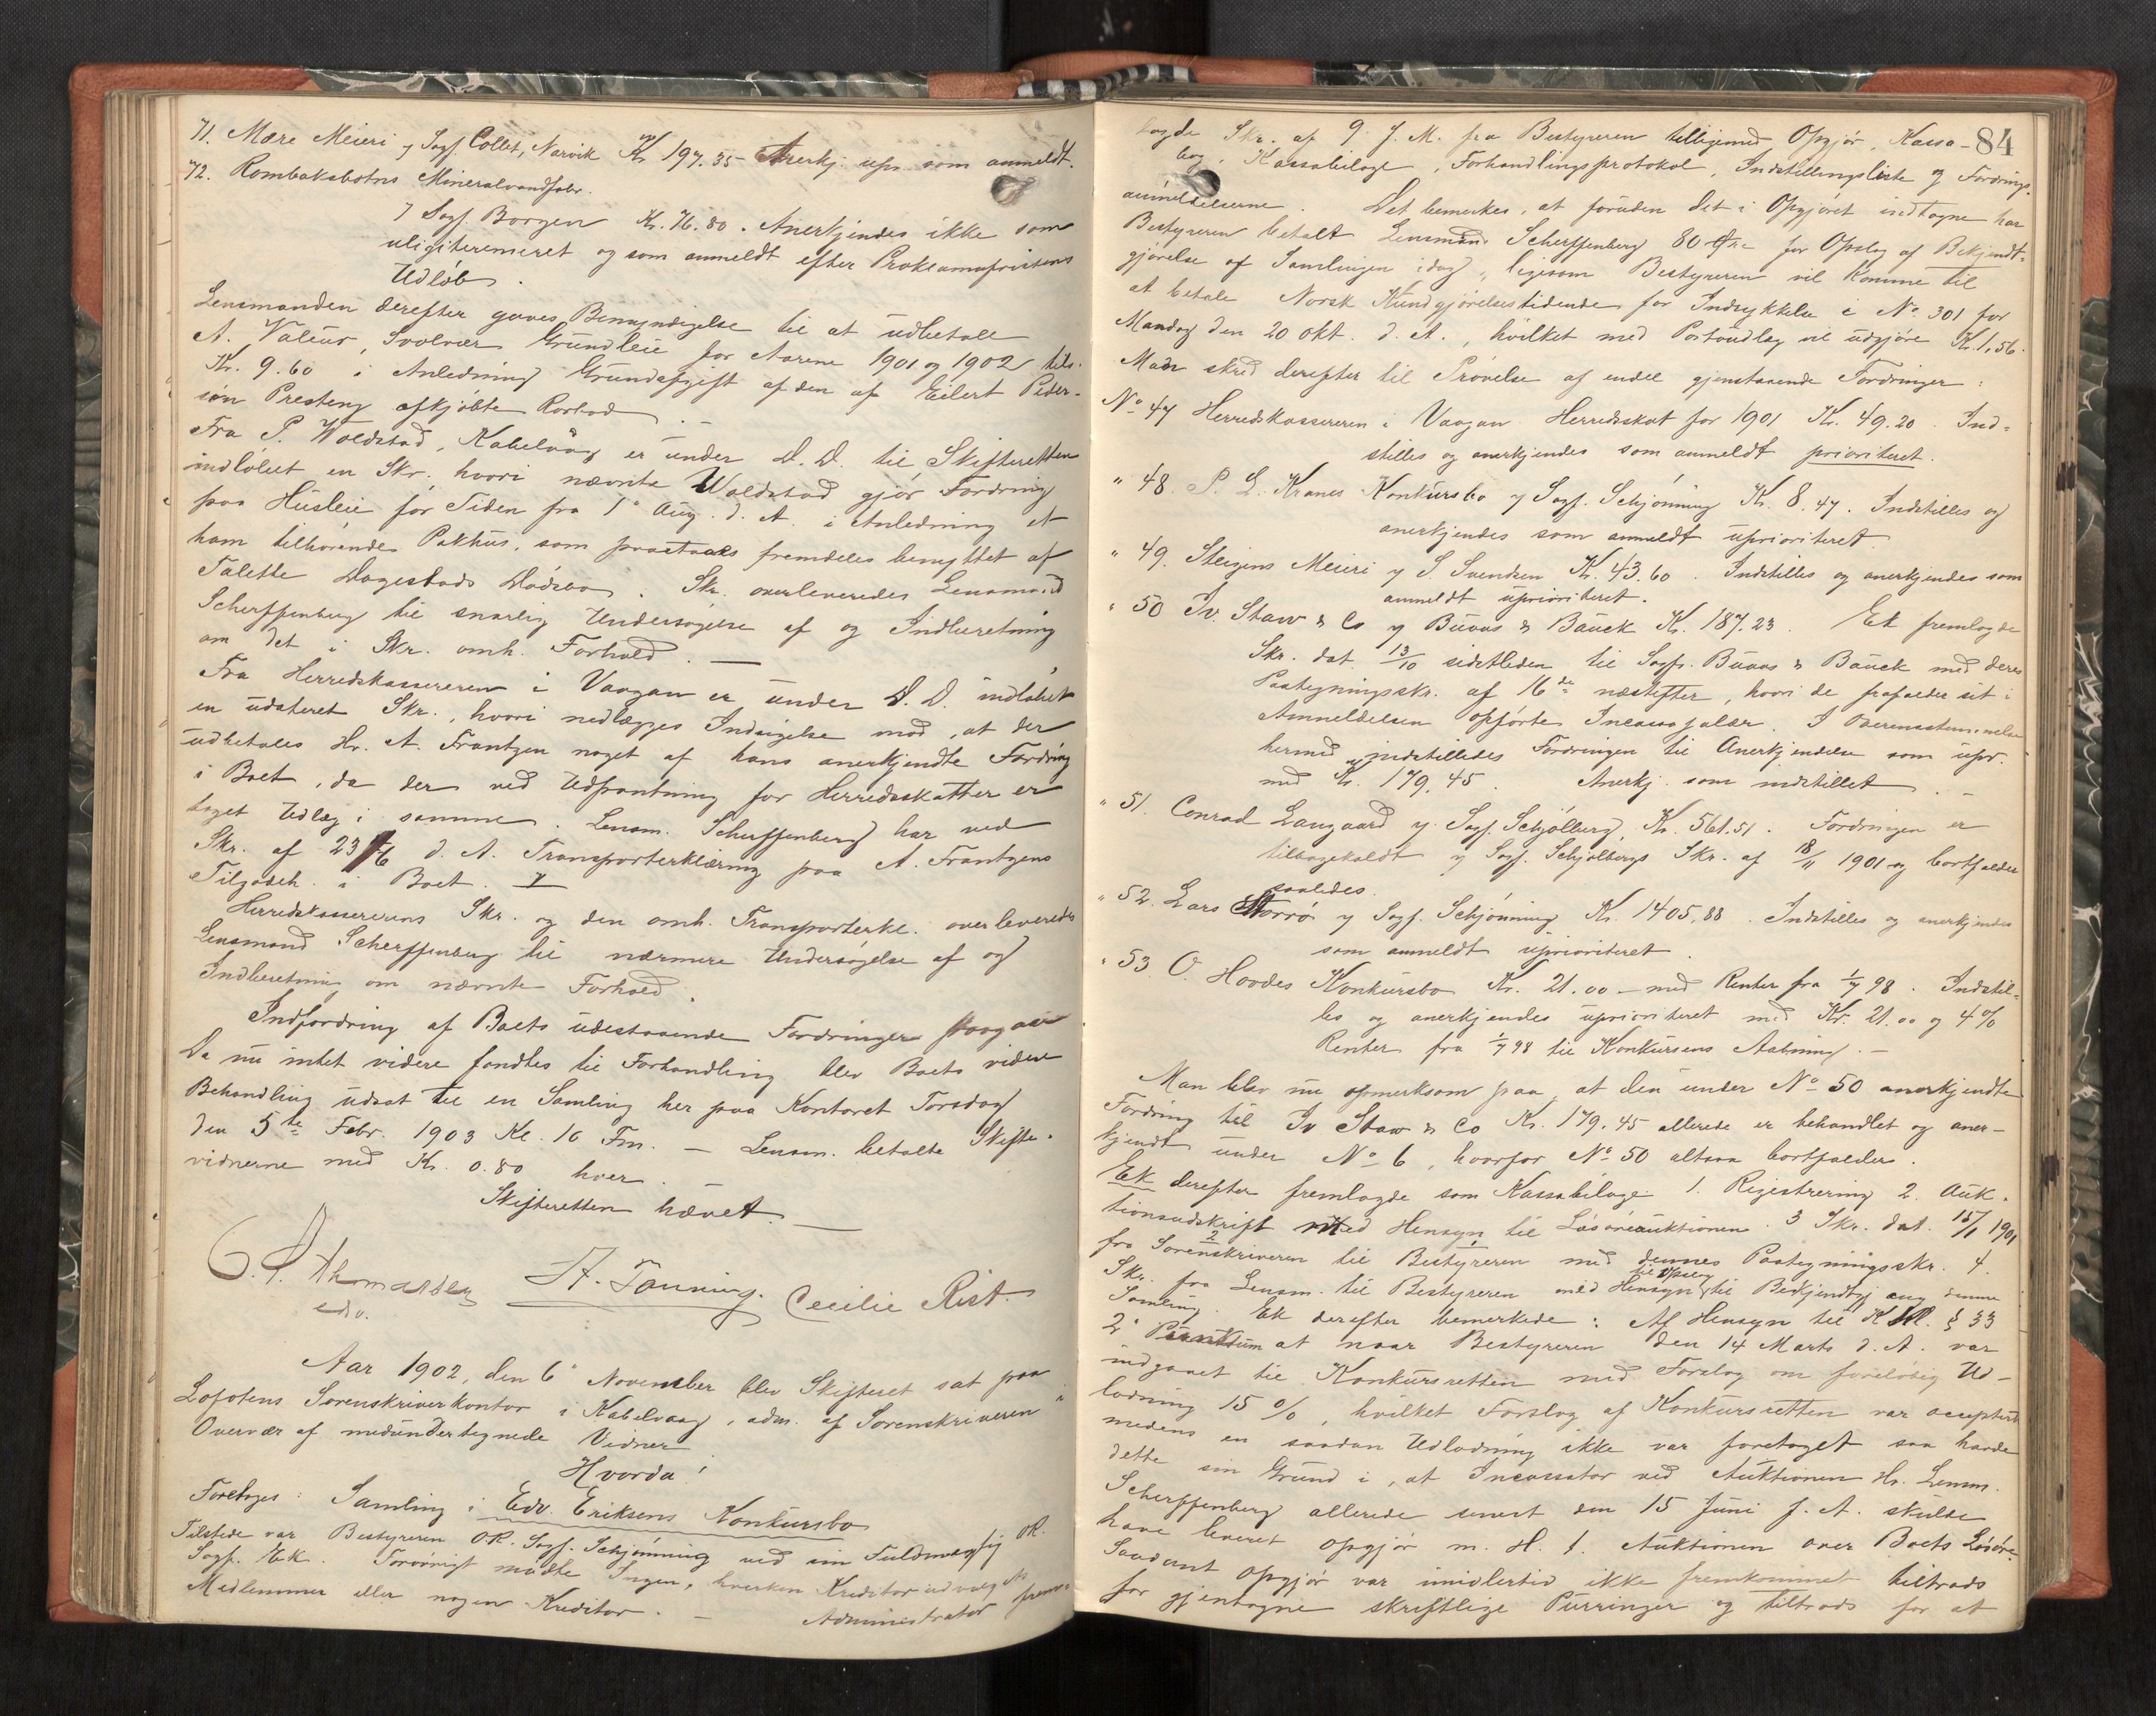 71. Mære Meieri v Sagf. Collet, Narvik Kr 197.35 - Anerkj. upr. som anmeldt.
72. Rombaksbotns Mineralvandfabr.
v Sagf. Borgen Kr. 76.80. Anerkjendes ikke som
uligitemeret og som anmeldt efter Proklamafristens
Udløb.
Lensmanden derefter gaves Bemyndigelse til at udbetale
A. Valeur, Svolvær Grundleie for Aarene 1901 og 1902 tils.
Kr. 9.60 i Anledning Grundafgift af den af Eilert Peder-
søn Presteng afkjøbte Rorbod. -
Fra P. Woldstad, Kabelvåg er under D.D. til Skifteretten
indløbet en Skr. hvori nævnte Woldstad gjør Fordring
paa Husleie for Tiden fra 1° Aug. d. A. i Anledning et
ham tilhørende Pakhus, som paastaaes fremdeles benyttet af
Talette Dagestads Dødsbo. Skr. overleveredes Lensmand
Scherffenberg til snarlig Undersøgelse af og Indberetning
om det i Skr. omh. Forhold. —
Fra Herredskassereren i Vaagan er under D.D. indløbet
en udateret Skr., hvori nedlægges Indsigelse mod, at der
udbetales Hr. A. Frantzen noget af hans anerkjendte Fordring
i Boet, da der ved Udpantning for Herredsskatter er
taget Udlæg i samme. Lensm. Scherffenberg har ved
Skr. af 23/6 d. A. Transporterklæring paa A. Frantzens
Tilgodeh. i Boet.
Herredskassererens Skr. og den omh. Transporterkl. overleveredes
Lensmand Scherffenberg til nærmere Undersøgelse af og
Indberetning om nævnte Forhold.
Indfordring af Boets udestaaende Fordringer paagaar
Da nu intet videre fandtes til Forhandling blev Boets videre
Behandling udsat til en Samling her paa Kontoret Torsdag
den 5te Febr. 1903 Kl. 10 Fm. - Lensm. betalte Skifte-
vidnerne med Kr. 0.80 hver. -
Skifteretten hævet. —
Thomassen H. Fanning. Cecilie Rist.
edv.
Aar 1902, den 6° November blev Skifteret sat paa
Lofotens Sorenskriverkontor i Kabelvaag, adm. af Sorenskriveren i
Overvær af medundertegnede Vidner
Hvorda!
Foretoges: Samling i Edv. Eriksens Konkursbo
Tilstede var Bestyreren OR. Sagf. Schjønning ved sin Fuldmægtig OR.
Sagf. Ek. Forøvrigt mødte Ingen, hverken Kreditorudvalgets
Medlemmer eller nogen Kreditor. - Administrator frem-
84
lagde Skr. af 9 f. M. fra Bestyreren tilligemed Opgjør, Kasse-
bog, Kassabilage, Forhandlingsprotokol, Indstillingsliste og Fordrings-
anmeldelserne. Det bemerkes, at foruden det i Opgjøret indtagne har
Bestyreren betalt Lensmand Scherffenberg 80 Øre for Opslag af Bekjendt-
gjørelse af Samlingen idag, ligesom Bestyreren vil komme til
at betale Norsk Kundgjørelsestidende for Indrykkelse i No 301 for
Mandag den 20 Okt. d. A., hvilket med Portoudlæg vil udgjøre Kr. 1,56.
Man skred derefter til Prøvelse af endel gjenstaaende Fordringer:
No 47 Herredskassereren i Vaagan Herredsskat for 1901 Kr. 49.20. Ind-
stilles og anerkjendes som anmeldt prioriteret.
" 48. P. L. Kranes Konkursbo v Sagf. Schjønning Kr. 8.47. Indstilles og
anerkjendes som anmeldt uprioriteret.
" 49. Steigens Meieri v S. Svendsen Kr. 43.60. Indstilles og anerkjendes som
anmeldt uprioriteret.
" 50 Iv. Staw & Co v Buaas & Bauck Kr. 187.23. Ek fremlagde
Skr. dat. 13/10 sidstleden til Sagf. Buaas & Bauck med deres
Paategningsskr. af 16de næstefter, hvori de frafalder sit i
Anmeldelsen opførte Incassosalær. I Overensstemmelse
hermed indstilledes Fordringen til Anerkjendelse som upr.
med Kr. 179.45. Anerkj. som indstillet. -
" 51. Conrad Langaard v. Sagf. Schjølberg, Kr. 561.51. Fordringen er
tilbagekaldt v Sagf. Schjølbergs Skr. af 18/11 1901 og bortfalder
saaledes.
" 52. Lars Storrø v Sagf. Schjønning Kr. 1405,88. Indstilles og anerkjendes
som anmeldt uprioriteret.
" 53. O. Hovdes Konkursbo Kr. 21.00 - med Renter fra 1/7 98. Indstil-
les og anerkjendes uprioriteret med Kr. 21.00 og 4%
Renter fra 1/7 98 til Konkursens Aabning. -
Man blev nu opmerksom paa, at den under No 50 anerkjendte
Fordring til Iv Staw & Co Kr. 179.45 allerede er behandlet og aner-
kjendt under No 6, hvorfor No 50 altsaa bortfalder.
Ek derefter fremlagde som Kassabilage 1. Registrering 2. Auk-
tionsudskrift med Hensyn til Løsøreauktionen. 3 Skr. dat. 15/1 1901
fra Sorenskriveren til Bestyreren med dennes Paategningsskr. 4.
til Opslag
Skr. fra Lensm. til Bestyreren med Hensyn til Bekjendtgj ang denne
Samling. Ek derefter bemerkede: Af Hensyn til K.L. § 33
2° Punktum at naar Bestyreren den 14 Marts d. A. var
indgaaet til Konkursretten med Forslag om foreløbig Ud-
lodning 15%, hvilket Forslag af Konkursretten var acceptert
medens en saadan Udlodning ikke var foretaget saa havde
dette sin Grund i, at Incassator ved Auktionen Hr. Lensm.
Scherffenberg allerede senest den 15 Juni f. A. skulde
have leveret Opgjør m. H. t. Auktionen over Boets Løsøre.
Saadant Opgjør var imidlertid ikke fremkommet tiltrods
for gjentagne skriftlige Purringer og tiltrods for at